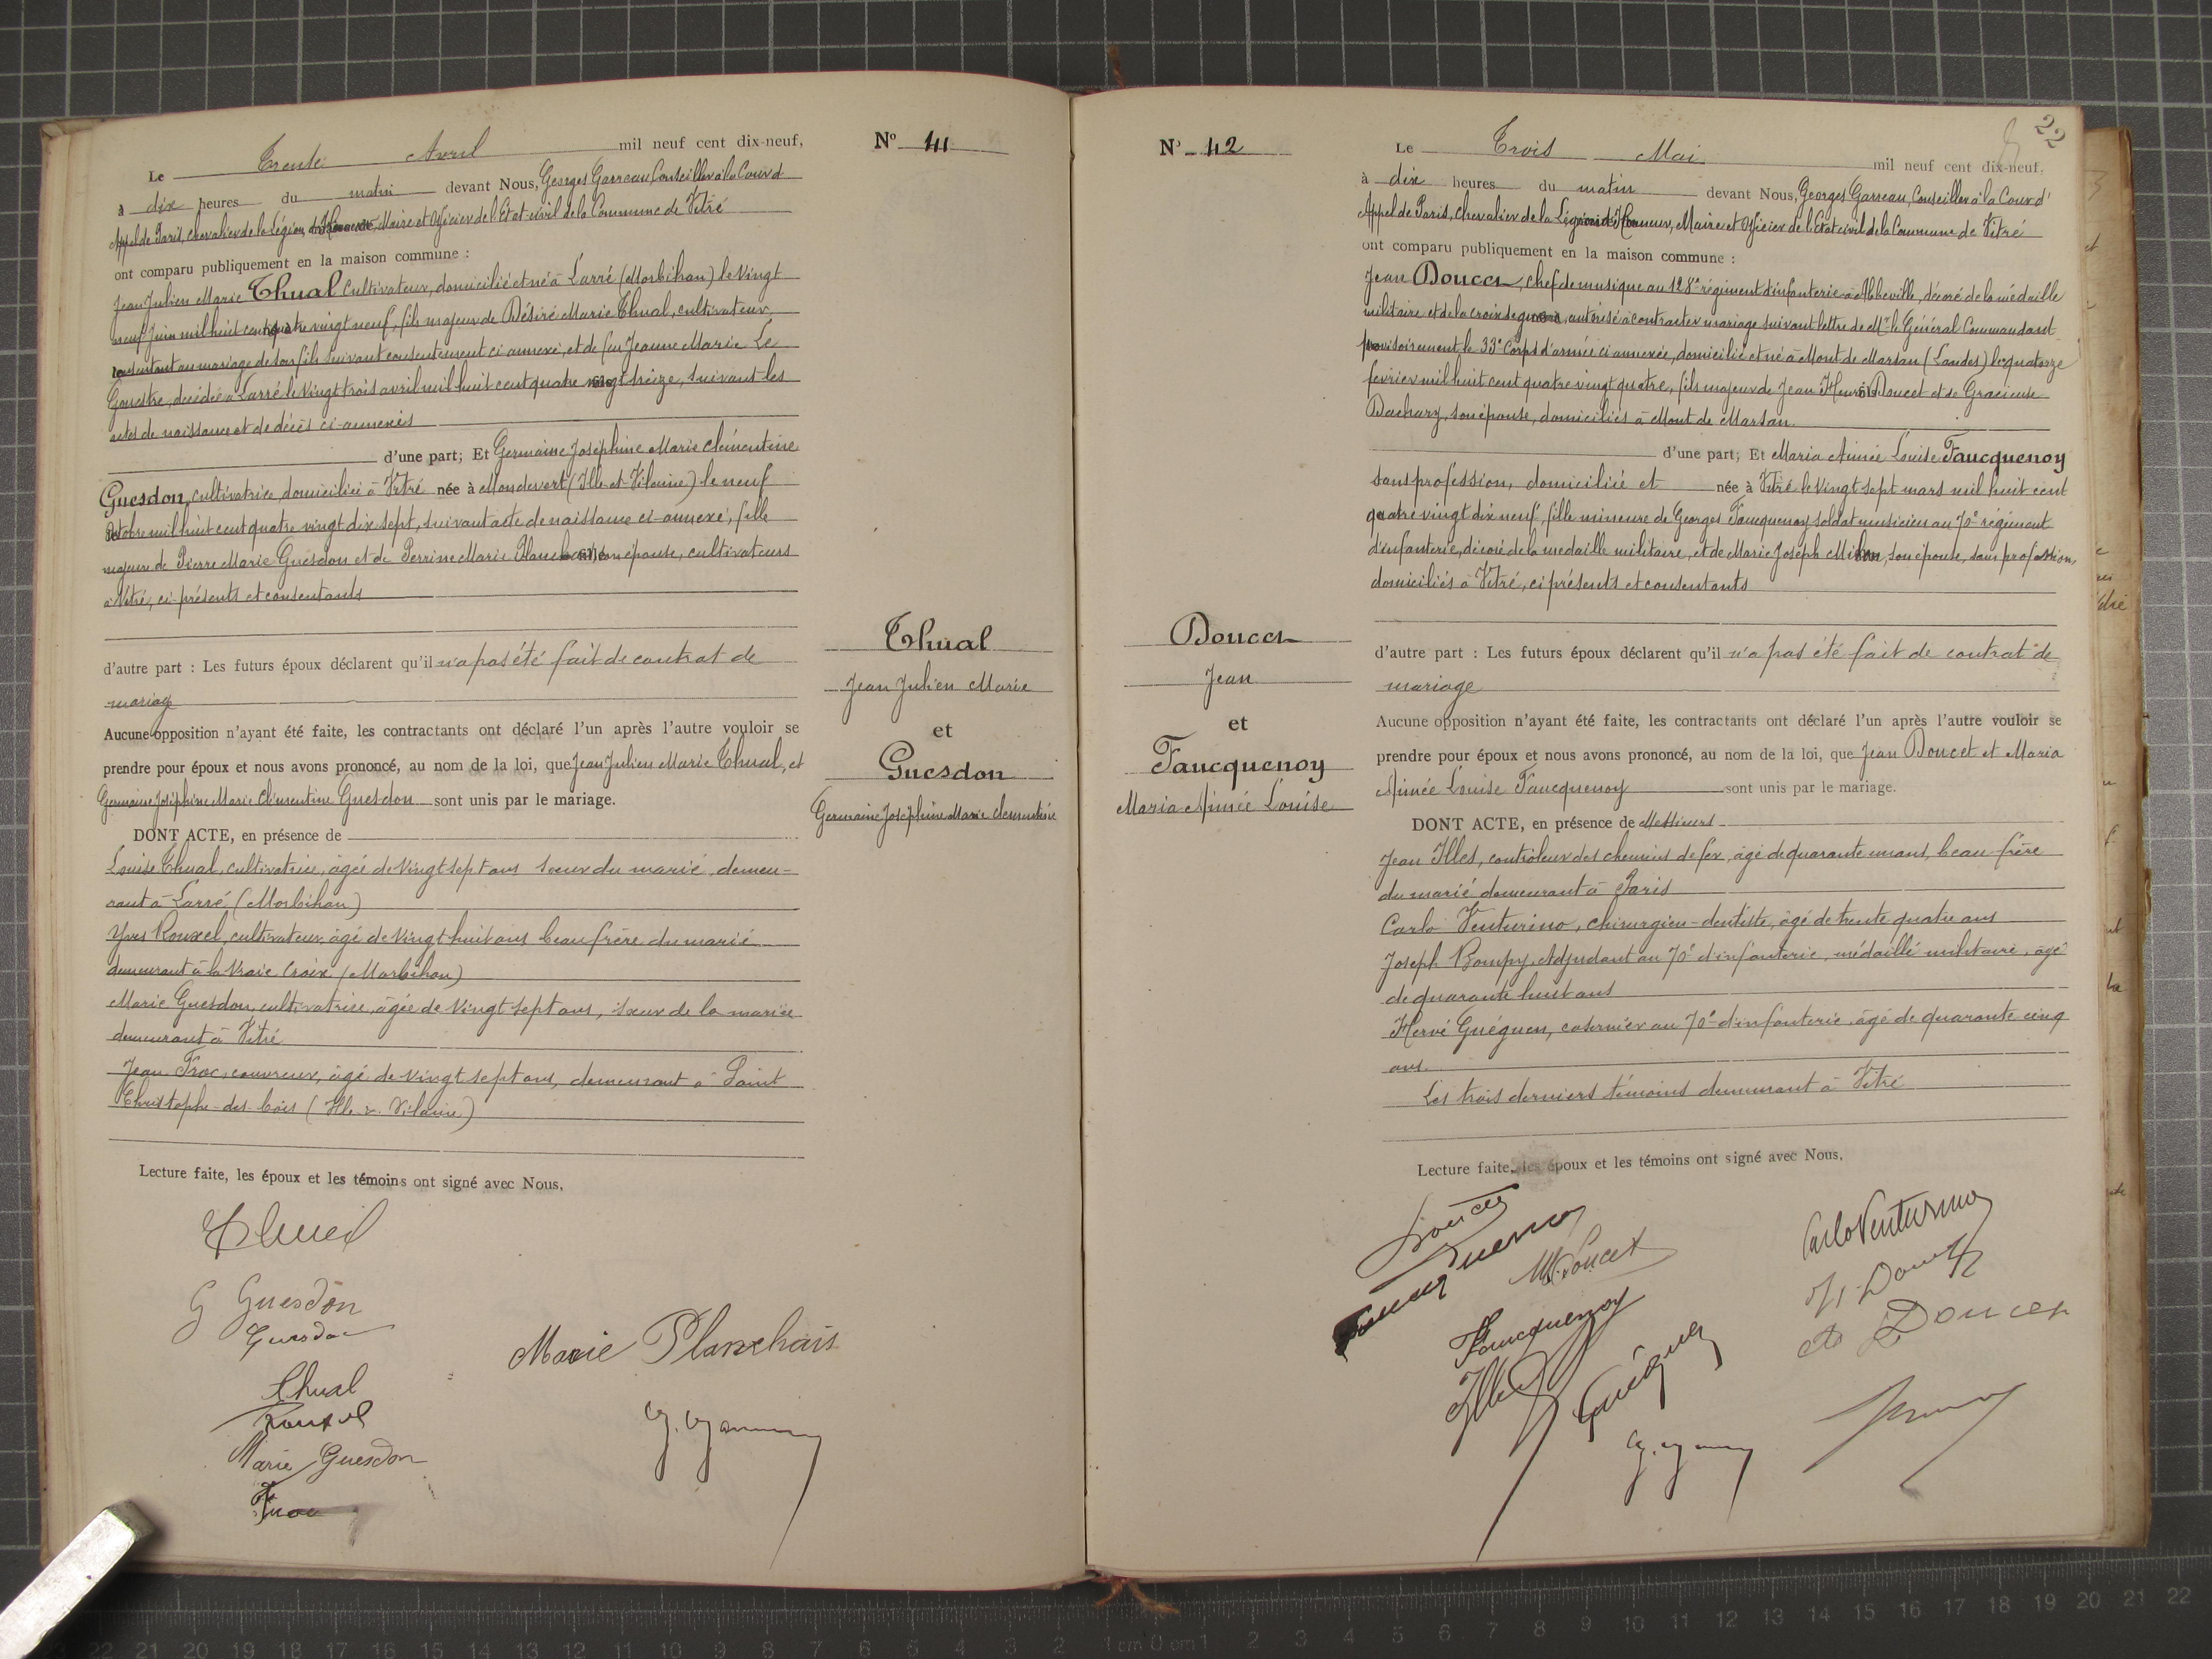 Le Trente Avril mil neuf cent dix-neuf,
à dix heures du matin devant Nous, Georges Garreau, Conseiller à la Cour d'
Appel de Paris, Chevalier de la Légion d'Honneur, Maire et Officier de l'Etat-civil de la Commune de Vitré
ont comparu publiquement en la maison commune :
Jean Julien Marie Thual cultivateur, domicilié et né à Larré (Morbihan) le vingt
neuf Juin mil huit cent quatre vingt neuf, fils majeur de Désiré Marie Thual, cultivateur,
consentant au mariage de son fils suivant consentement ci-annexé, et de feu Jeanne Marie Le
Gouestre, décédée à Larré le vingt trois avril mil huit cent quatre vingt treize, suivant les
actes de naissance et de décès ci-annexés
d'une part; Et Germaine Joséphine Marie Clémentine
Guesdon, cultivatrice, domiciliée à Vitré née à Mondevert (Ille-et-Vilaine) le neuf
Octobre mil huit cent quatre vingt dix sept, suivant acte de naissance ci-annexé, fille
majeure de Pierre Marie Guesdon et de Perrine Marie son épouse, cultivateurs
à Vitré, ci-présents et consentants
d'autre part : Les futurs époux déclarent qu'il n'a pas été fait de contrat de
mariage
Aucune opposition n'ayant été faite, les contractants ont déclaré l'un après l'autre vouloir se
prendre pour époux et nous avons prononcé, au nom de la loi, que Jean Julien Marie Thual, et
Germaine Joséphine Marie Clémentine Guesdon sont unis par le mariage.
DONT ACTE, en présence de
Louise Thual, cultivatrice, âgée de vingt sept ans soeur du marié, demeu-
rant à Larré (Morbihan)
Yves Rouxel, cultivateur, âgé de vingt huit ans beau frère du marié
demeurant à la Vraie Croix (Morbihan)
Marie Guesdon, cultivatrice, âgée de vingt sept ans, soeur de la mariée
demeurant à Vitré
Jean Froc, couvreur, âgé de vingt sept ans, demeurant à Saint
Christophe-des-bois (Ille & Vilaine)
Lecture faite, les époux et les témoins ont signé avec Nous.
Thual
G Guesdon
Guesdon
Thual
Rouxel
Marie Guesdon
Froc
Marie Planchais
N° 41
Thual
Jean Julien Marie
et
Guesdon
Germaine Joséphine Marie Clémentine
22
N° 42
Doucet
Jean
et
Faucquenoy
Maria Aimée Louise
Le Trois Mai mil neuf cent dix-neuf.
à dix heures du matin devant Nous, Georges Garreau, Conseiller à la Cour d'
Appel de Paris, Chevalier de la Légion d'Honneur, Maire et Officier de l'Etat civil de la Commune de Vitré
ont comparu publiquement en la maison commune :
Jean Doucet, chef de musique au 128e régiment d'infanterie à Abbeville, décoré de la médaille
militaire et de la croix de guerre, autorisé à contracter mariage suivant lettre de Mr le Général Commandant
provisoirement le 33e Corps d'armée ci annexée, domicilié et né à Mont de Marsan (Landes) le quatorze
février mil huit cent quatre vingt quatre, fils majeur de Jean Henri Doucet et de Gracieuse
Dachary, son épouse, domiciliés à Mont de Marsan
d'une part; Et Maria Aimée Louise Faucquenoy
sans profession, domiciliée et née à Vitré le vingt sept mars mil huit cent
quatre vingt dix neuf, fille mineure de Georges Faucquenoy soldat musicien au 70e régiment
d'infanterie, décoré de la médaille militaire, et de Marie Joseph son épouse, sans profession,
domiciliés à Vitré, ci présents et consentants
d'autre part : Les futurs époux déclarent qu'il n'a pas été fait de contrat de
mariage
Aucune opposition n'ayant été faite, les contractants ont déclaré l'un après l'autre vouloir se
prendre pour époux et nous avons prononcé, au nom de la loi, que Jean Doucet et Maria
Aimée Louise Faucquenoy sont unis par le mariage.
DONT ACTE, en présence de Messieurs
Jean Illes, contrôleur des chemins de fer, âgé de quarante un ans, beau-frère
du marié demeurant à Paris
Carlo Venturino, chirurgien-dentiste, âgé de trente quatre ans
Joseph Adjudant au 70e d'infanterie, médaillé militaire, âgé
de quarante huit ans
Hervé Guéguen, casernier au 70e d'infanterie, âgé de quarante cinq
ans.
Les trois derniers témoins demeurant à Vitré
Lecture faite, les époux et les témoins ont signé avec Nous.
Doucet
M. Doucet
Faucquenoy
Illes
Guéguen
Carlo Venturino
Doucet